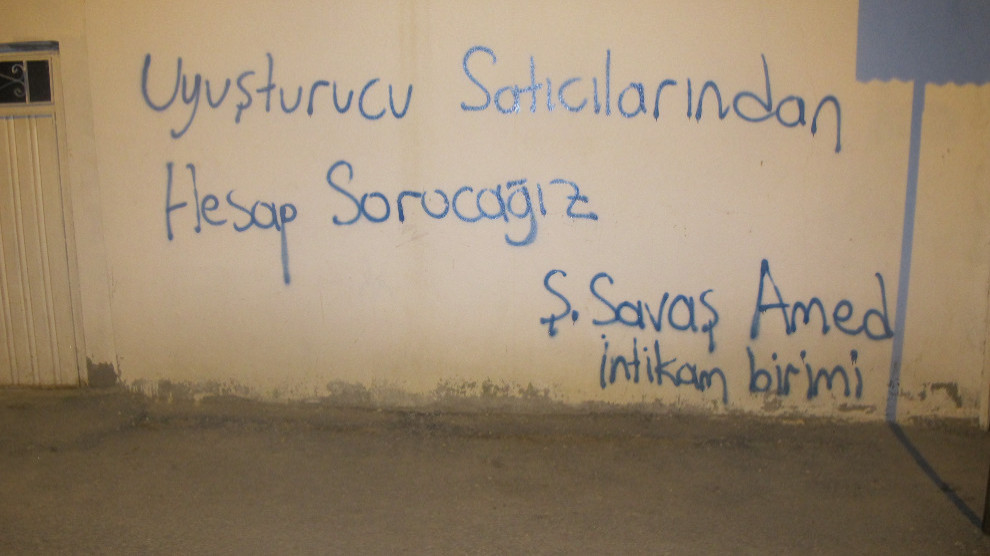 Uyuşturucu Satıcılarından
Hesap Sorucağız
Ş. Savaş Amed
intikam birimi